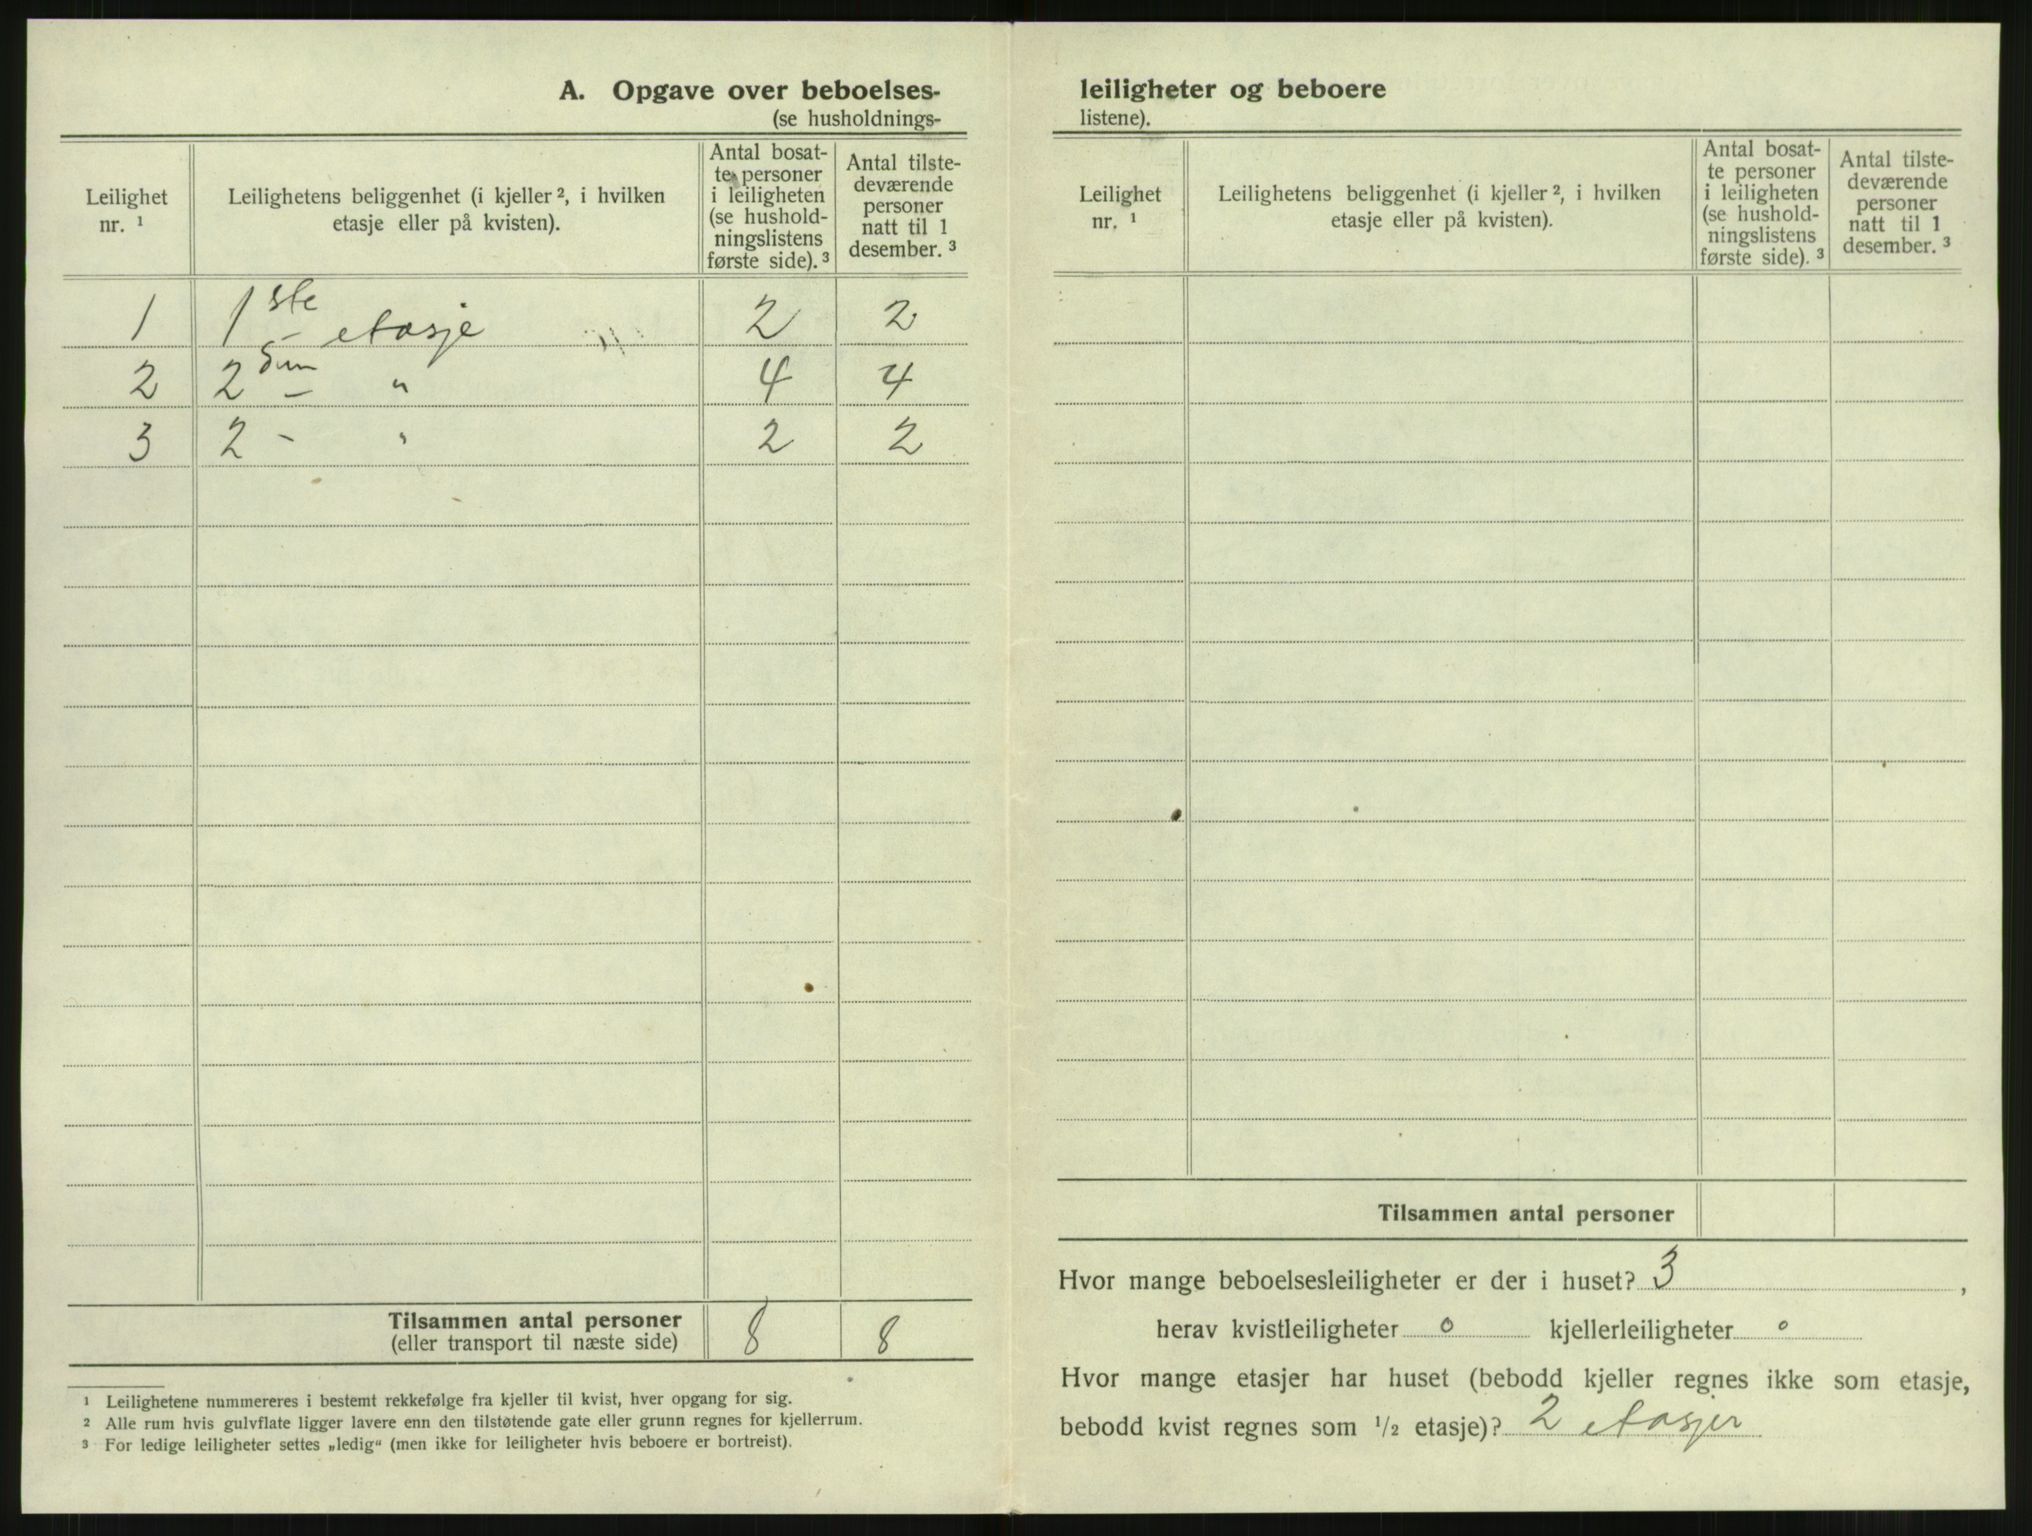 A. Opgave over beboelses-
(se husholdnings-
Leilighet
nr. ¹
Leilighetens beliggenhet (i kjeller ², i hvilken
etasje eller på kvisten).
Antal bosat-
te personer
i leiligheten
(se hushold-
ningslistens
første side). ³
Antal tilste-
deværende
personer
natt til 1
desember. ³
1 1ste - etasje 2 2
2 2 - " 4 4
3 2 - " 2 2
Tilsammen antal personer 8 8
(eller transport til næste side)
¹ Leilighetene nummereres i bestemt rekkefølge fra kjeller til kvist, hver opgang for sig.
² Alle rum hvis gulvflate ligger lavere enn den tilstøtende gate eller grunn regnes for kjellerrum.
³ For ledige leiligheter settes „ledig“ (men ikke for leiligheter hvis beboere er bortreist).
leiligheter og beboere
listene).
Leilighet
nr. ¹
Leilighetens beliggenhet (i kjeller ², i hvilken
etasje eller på kvisten).
Antal bosat-
te personer
i leiligheten
(se hushold-
ningslistens
første side). ³
Antal tilste-
deværende
personer
natt til 1
desember. ³
Tilsammen antal personer
Hvor mange beboelsesleiligheter er der i huset? 3,
herav kvistleiligheter 0 kjellerleiligheter 0
Hvor mange etasjer har huset (bebodd kjeller regnes ikke som etasje,
bebodd kvist regnes som ½ etasje)? 2 etasjer